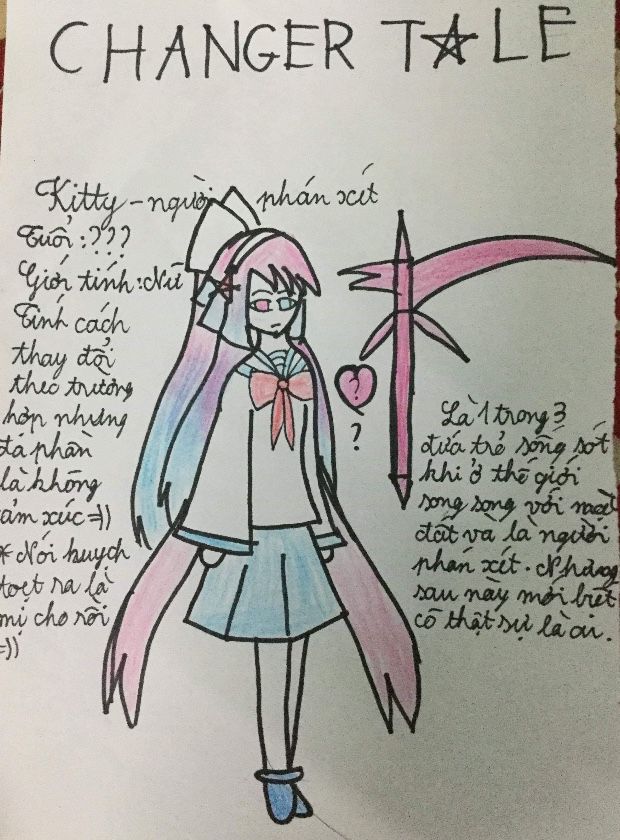 CHANGER TALE
Kitty - người phán xét
Tuổi : ???
Giới tính : Nữ
Tính cách
thay đổi
theo trường
hợp nhưng
đa phần
là không
cảm xúc =))
* Nói huỵch
toẹt ra là
mị cho rồi
=))
?
?
Là 1 trong 3
đứa trẻ sống sót
khi ở thế giới
song song với mặt
đất và là người
phán xét. Nhưng
sau này mới biết
cô thật sự là ai.